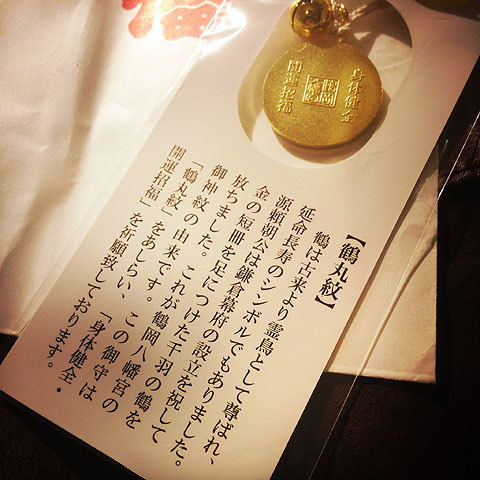 福
身体健全
鶴岡
八幡宮
開運招福
【鶴丸紋】
鶴は古来より霊鳥として尊ばれ、
延命長寿のシンボルでもありました。
源頼朝公は鎌倉幕府の設立を祝して
金の短冊を足につけた千羽の鶴を
放ちました。これが鶴岡八幡宮の
御神紋の由来です。この御守は
「鶴丸紋」をあしらい、「身体健全・
開運招福」を祈願致しております。